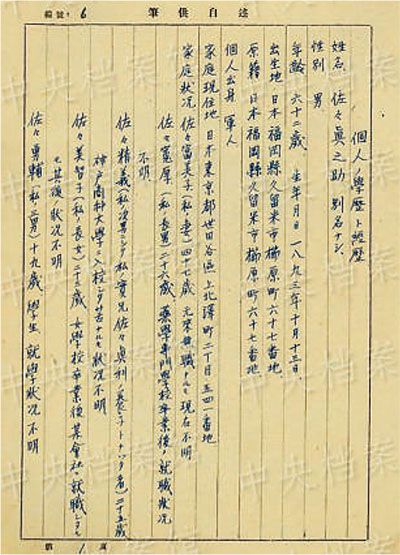 述自供筆
編號：6
個人ノ學歷ト經歷
姓名 佐々眞之助 別名ナシ
性別 男
年齡 六十二歲 生年月日 一八九三年十月十三日
出生地 日本福岡縣久留米市櫛原町六十七番地
原籍 日本福岡縣久留米市櫛原町六十七番地
個人出身 軍人
家庭現住地 日本東京都世田谷區上北澤町二丁目五四一番地
家庭狀況 佐々富美子(私ノ妻)四十七歲 元來無職ナルモ現在不明
佐々寬厚(私ノ長男)二十六歲 藥學專門學校卒業後ノ就職狀況
不明
佐々精義(私ノ次男ニシテ私ノ實兄佐々眞利ノ養子トナツタ者)二十五歲
神戶商科大學ニ入校シタル筈ナルモ狀況不明
佐々美智子(私ノ長女)二十三歲 女學校卒業後某會社ニ就職シタル
モ其後ノ狀況不明
佐々勇輔(私ノ三男)十九歲 學生 就學狀況不明
第 1 頁
中央档案